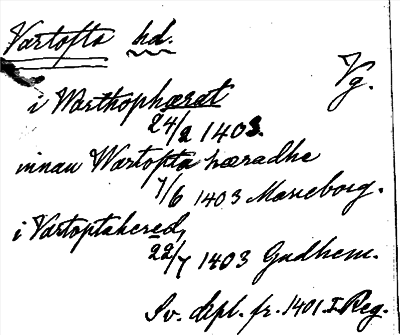 Vartofta hd.
Vg.
i Warthophærat
24/2 1403.
innan Wartopta hæradhe
7/6 1403 Marieborg.
i Vartoptahered,
22/7 1403 Gudhem.
Sv. dipl. fr. 1401 I Reg.